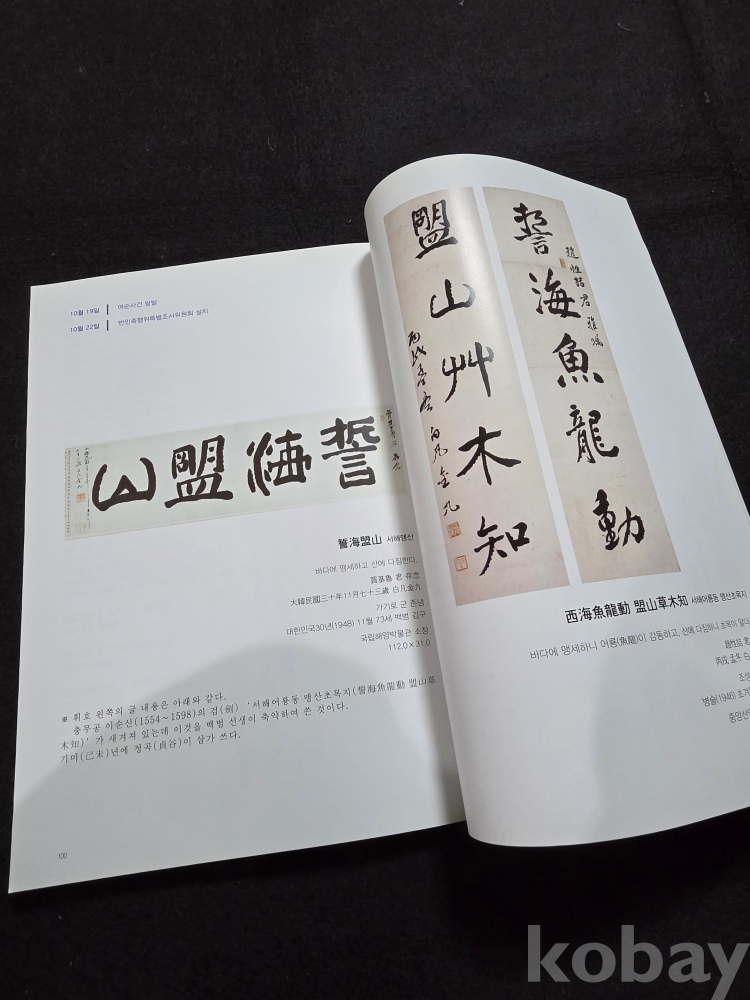 10월 19일 | 여순사건 발발
10월 22일 | 반민족행위특별조사위원회 설치
誓海盟山
誓海盟山 서해맹산
바다에 맹세하고 산에 다짐한다.
賈基魯 君 存念
大韓民國三十年11月七十三歲 白凡金九
가기로 군 존념
대한민국30년(1948) 11월 73세, 백범 김구
국립해양박물관 소장
112.0×31.0
※ 휘호 왼쪽의 글 내용은 아래와 같다.
충무공 이순신(1554~1598)의 검(劍) '서해어룡동 맹산초목지(誓海魚龍動 盟山草
木知)' 가 새겨져 있는데 이것을 백범 선생이 축약하여 쓴 것이다.
기미(己未)년에 정곡(貞谷)이 삼가 쓰다.
100
誓海魚龍動
趙性喆君 雅囑
盟山艸木知
丙戌孟冬 白凡金九
西海魚龍動 盟山草木知 서해어룡동 맹산초목지
바다에 맹세하니 어룡(魚龍)이 감동하고, 산에 다짐하니 초목이 알다
趙性喆 君
丙戌 孟冬 白
조성
병술(1946) 초겨
중앙선
kobay